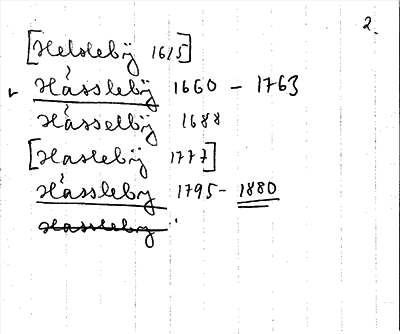 2.
[Helsleby 1615]
Hässleby 1660 - 1763
Hässelby 1688
[Hasleby 1777]
Hässleby 1795- 1880
Hässleby